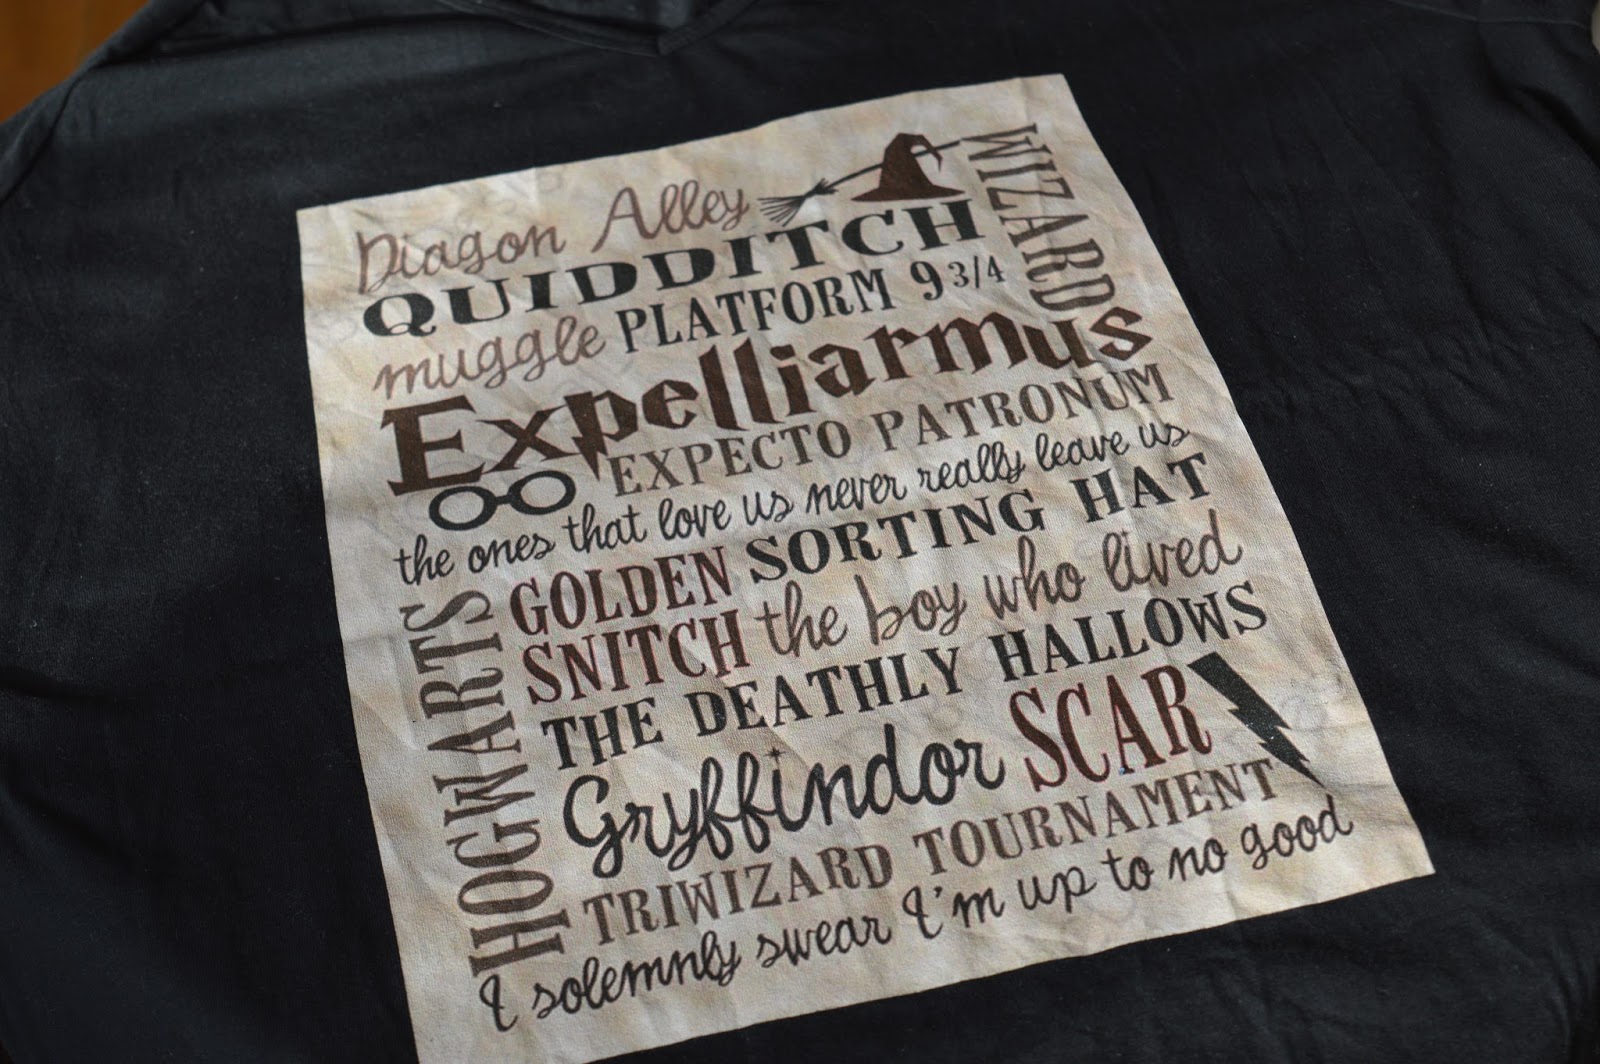 Diagon Alley
WIZARD
QUIDDITCH
muggle PLATFORM 9 3/4
Expelliarmus
EXPECTO PATRONUM
the ones that love us never really leave us
HOGWARTS
GOLDEN SORTING HAT
SNITCH the boy who lived
THE DEATHLY HALLOWS
Gryffindor SCAR
TRIWIZARD TOURNAMENT
I solemnly swear I'm up to no good